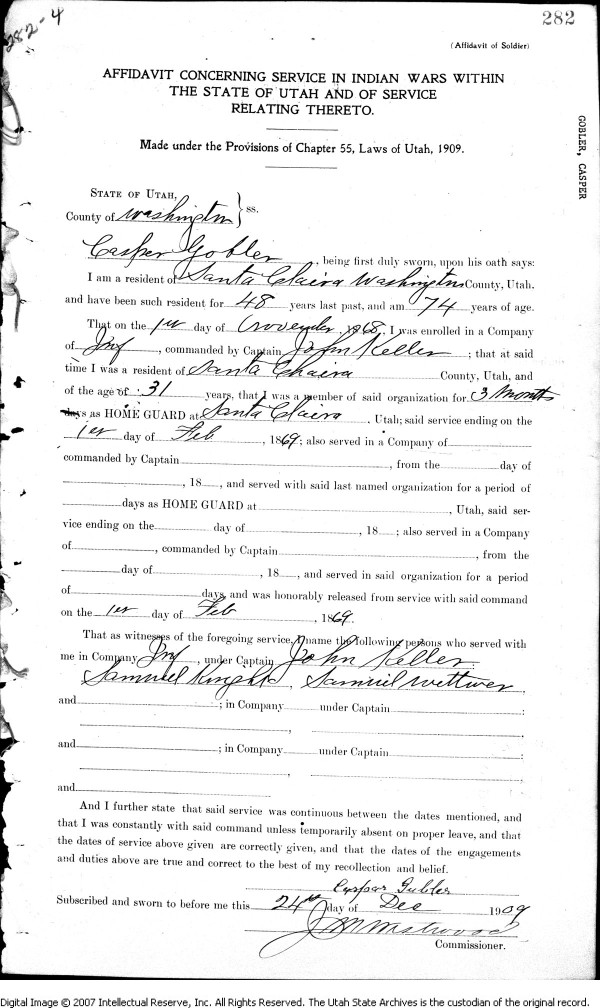 282-4
282
(Affidavit of Soldier)
AFFIDAVIT CONCERNING SERVICE IN INDIAN WARS WITHIN
THE STATE OF UTAH AND OF SERVICE
RELATING THERETO.
Made under the Provisions of Chapter 55, Laws of Utah, 1909.
GOBLER, CASPER
STATE OF UTAH,
County of Washington } ss.
Casper Gobler, being first duly sworn, upon his oath says:
I am a resident of Santa Claira Washington County, Utah,
and have been such resident for 48 years last past, and am 74 years of age.
That on the 1er day of November, 1868, I was enrolled in a Company
of Inf, commanded by Captain John Keller; that at said
time I was a resident of Santa Claira County, Utah, and
of the age of 31 years, that I was a member of said organization for 3 Months
days as HOME GUARD at Santa Claira, Utah; said service ending on the
1er day of Feb, 1869; also served in a Company of
commanded by Captain, from the day of
, 18, and served with said last named organization for a period of
days as HOME GUARD at, Utah, said ser-
vice ending on the day of, 18; also served in a Company
of, commanded by Captain, from the
day of, 18, and served in said organization for a period
of days, and was honorably released from service with said command
on the 1er day of Feb, 1869.
That as witnesses of the foregoing service, I name the following persons who served with
me in Company Inf, under Captain John Keller:
Samuel Knight, Samuel Wittwer
and; in Company under Captain:
,
and; in Company under Captain:
,
and
And I further state that said service was continuous between the dates mentioned, and
that I was constantly with said command unless temporarily absent on proper leave, and that
the dates of service above given are correctly given, and that the dates of the engagements
and duties above are true and correct to the best of my recollection and belief.
Caspar Gubler
Subscribed and sworn to before me this 24th day of Dec 1909
Commissioner.
Digital Image © 2007 Intellectual Reserve, Inc. All Rights Reserved. The Utah State Archives is the custodian of the original record.